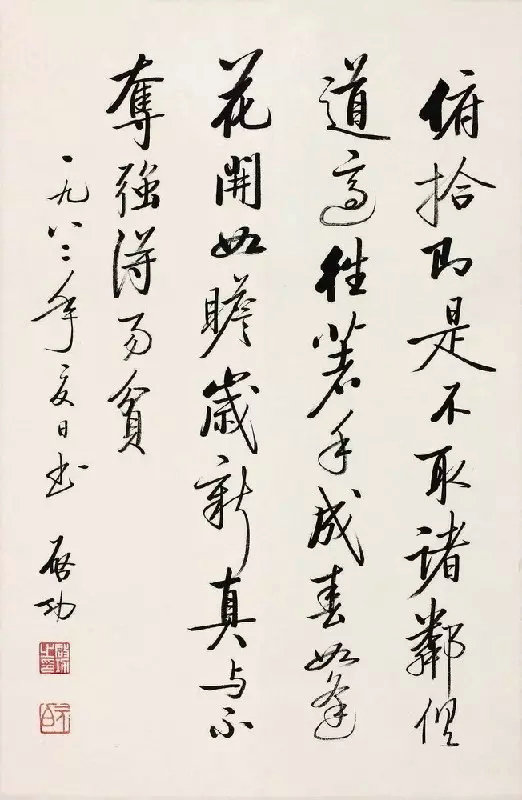 俯拾即是不取諸鄰俱
道適往著手成春如逢
花開如瞻歲新真与不
奪強得易貧
一九八二年夏日书 启功